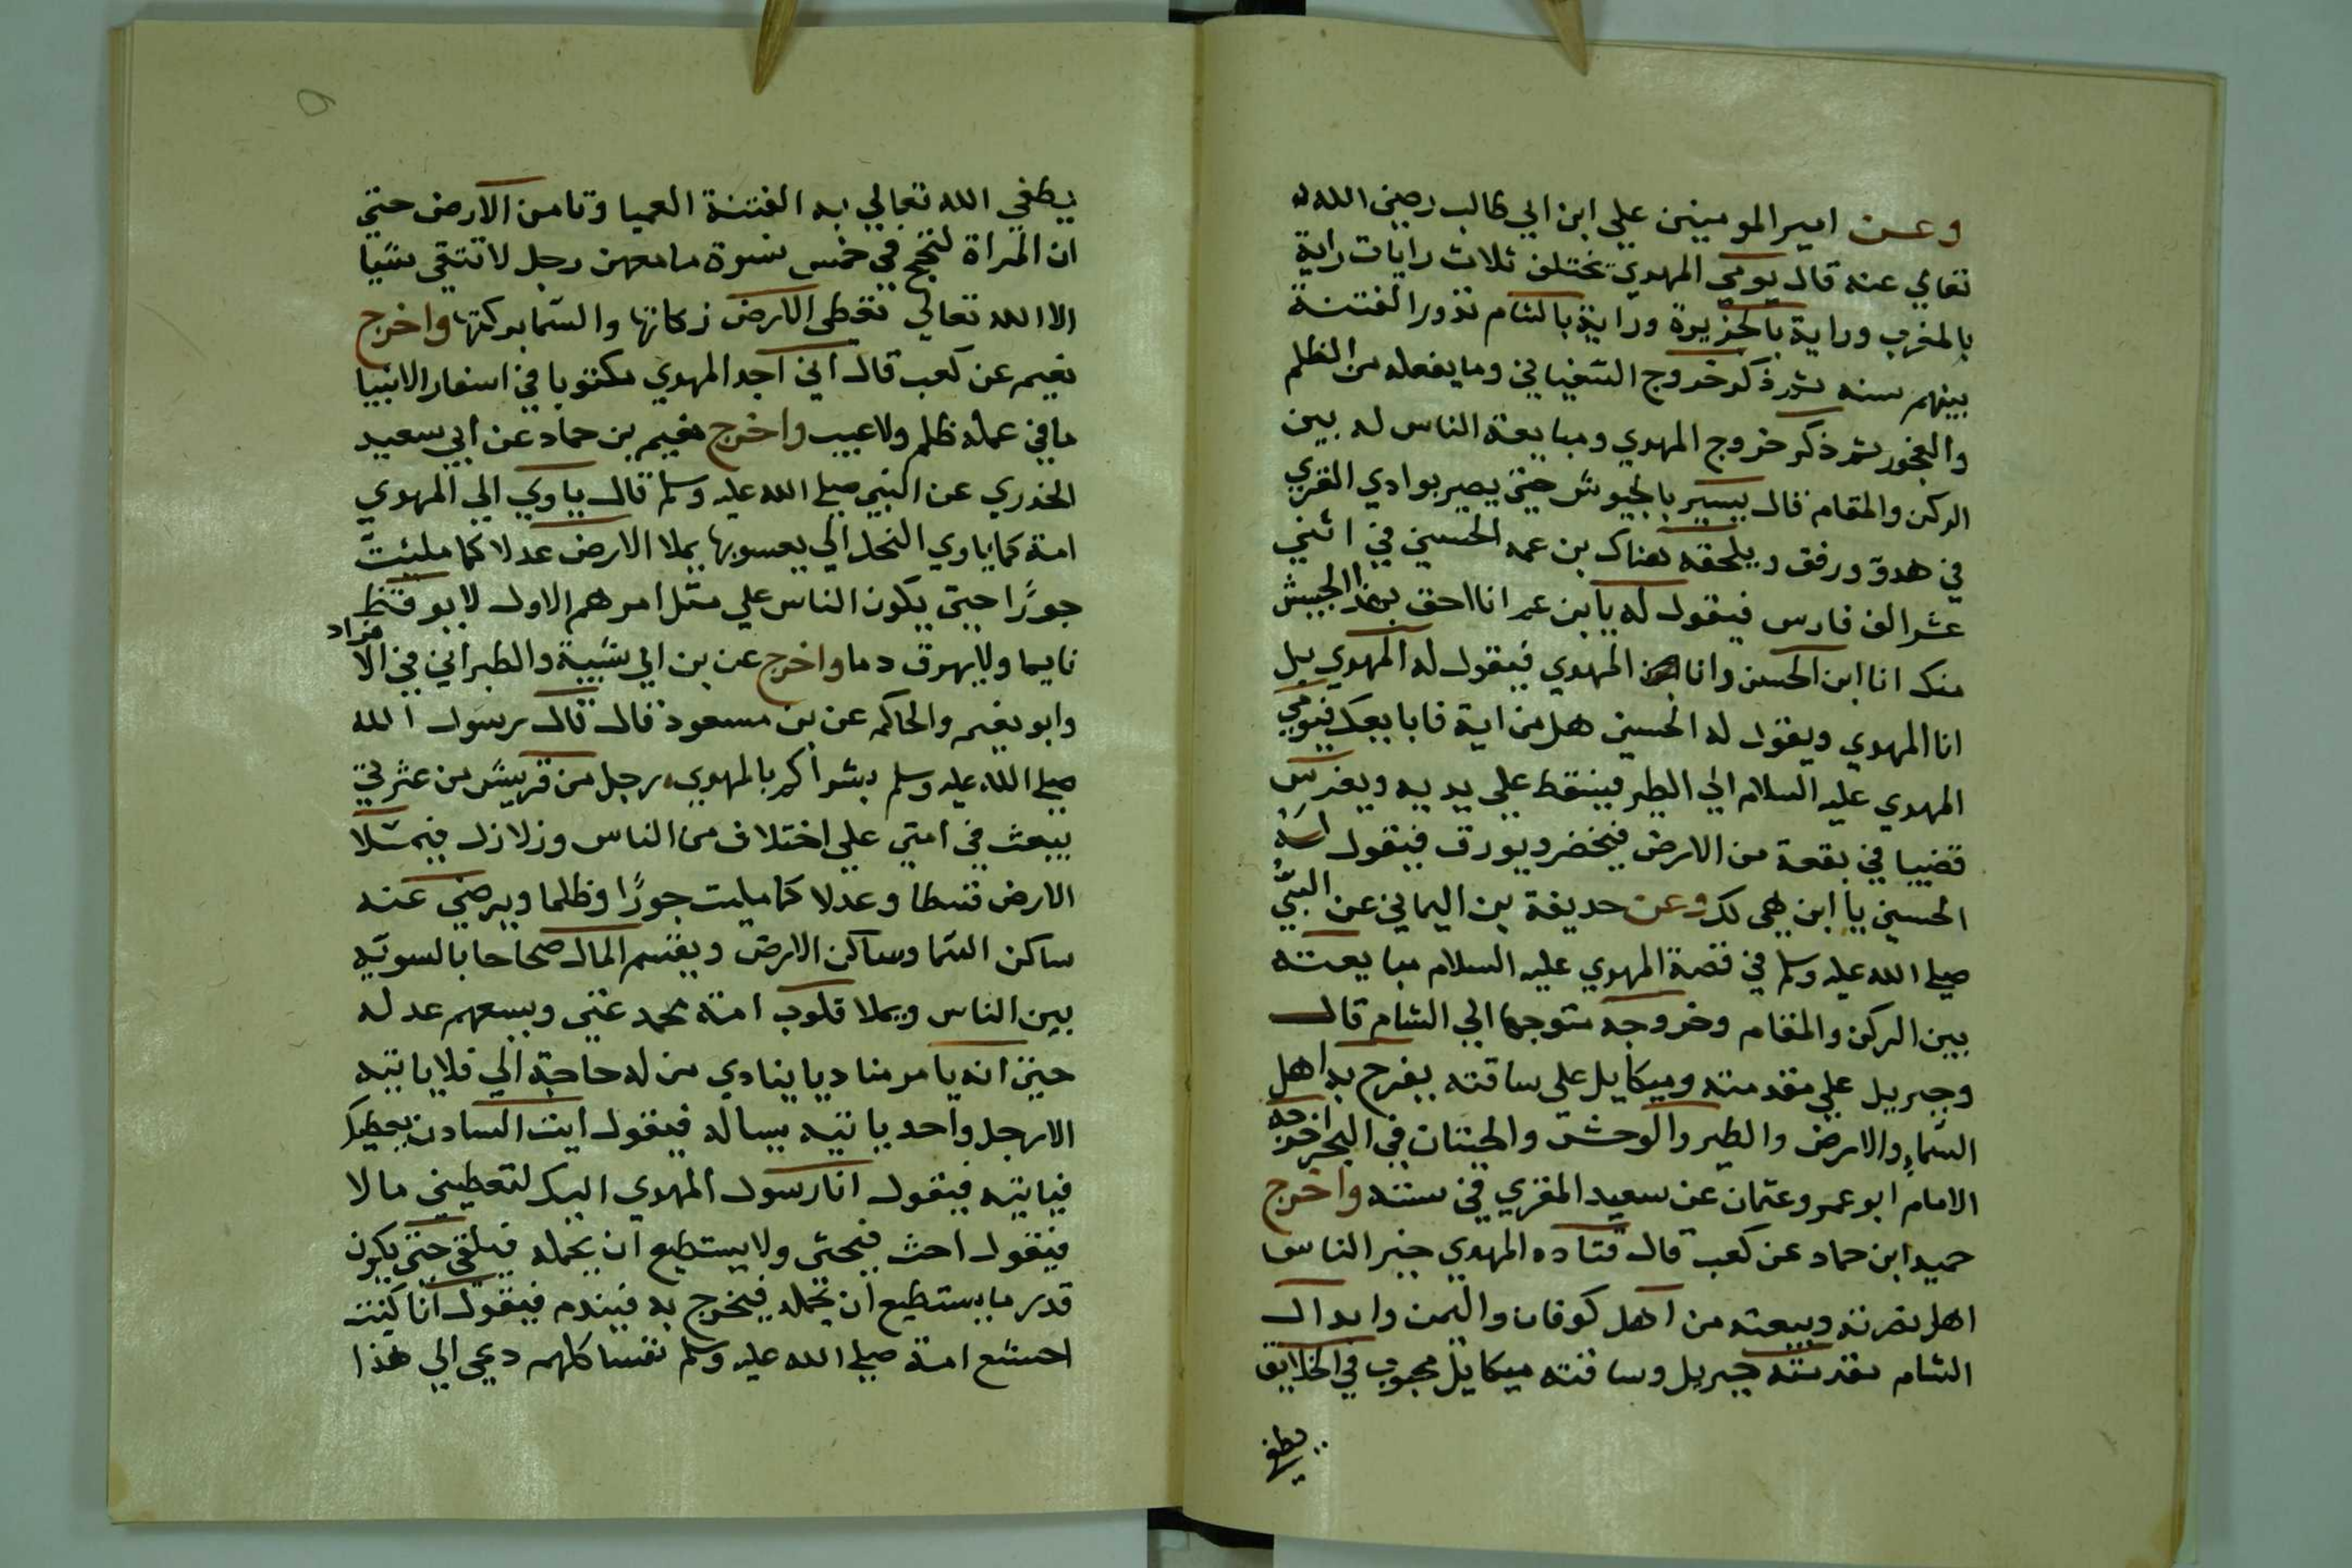 وعن امير المومينين علي ابن ابي طالب رضي الله
تعالي عنه قال يومي المهدي تختلف ثلاث رايات راية
بالمغرب وراية بالجزيرة وراية بالشام تدور الفتنة
بينهم سنه ثم ذكر خروج السفياني وما يفعله من الظلم
والفجور ثم ذكر خروج المهدي ومبايعة الناس له بين
الركن والمقام قال يسير بالجيوش حتي يصير بوادي القري
في هدو ورفق ويلحقه هناك بن عمه الحسيني في اثني
عشر الف فارس فيقول له يابن عم انا احق بهذا الجيش
منك انا ابن الحسن وانا المهدي فيقول له المهدي بل
انا المهدي ويقول له الحسين هل من اية فابايعك فيومي
المهدي عليه السلام الي الطير فيسقط علي يديه ويغرس
قضيبا في بقعة من الارض فيخضر ويورق فيقول له
الحسيني يا ابن هي لك وعن حديفة بن اليماني عن النبي
صلي الله عليه وسلم في قصة المهدي عليه السلام مبايعته
بين الركن والمقام وخروجه متوجها الي الشام قال
وجبريل علي مقدمته وميكايل علي ساقته يفرح به اهل
السماء والارض والطير والوحش والحيتان في البحر اخرجه
الامام ابو عمر وعثمان عن سعيد المقري في سننه واخرج
حميد ابن حماد عن كعب قال قتاده المهدي خير الناس
اهل نصرته وبيعته من اهل كوفان واليمن وابدال
الشام مقدمته جبريل وساقته ميكايل محبوب في الخلايق
يطفي
يطفي الله تعالي به الفتنة العميا وتامن الارض حتي
ان المراة لتحج في خمس نسوة ما معهن رجل لا تتقي شيا
الا الله تعالي تعطي الارض زكاتها والسما بركتها واخرج
نعيم عن كعب قال اني اجد المهدي مكتوبا في اسفار الانبيا
ما في عمله ظلم ولا عيب واخرج نعيم بن حماد عن ابي سعيد
الخدري عن النبي صلي الله عليه وسلم قال ياوي الي المهدي
امة كما ياوي النحل الي يعسوبها يملا الارض عدلا كما ملئت
جورًا حتي يكون الناس علي مثل امرهم الاول لا يوقظ
نايما ولا يهرق دما واخرج عن بن ابي شيبة والطبراني في الافراد
وابو نعيم والحاكم عن بن مسعود قال قال رسول الله
صلي الله عليه وسلم بشراكم بالمهدي رجل من قريش من عترتي
يبعث في امتي علي اختلاف من الناس وزلازل فيملا
الارض قسطا وعدلا كما مليت جورًا وظلما ويرضي عنه
ساكن السما وساكن الارض ويقسم المال صحاحا بالسويه
بين الناس ويملا قلوب امة محمد غني ويسعهم عدله
حتي انه يامر مناديا ينادي من له حاجة الي فلا ياتيه
الا رجل واحد ياتيه يساله فيقول ايت السادن يعطيك
فياتيه فيقول انا رسول المهدي اليك لتعطيني مالا
فيقول احث فيحثي ولا يستطيع ان يحمله فيلقي حتي يكون
قدر ما يستطيع ان يحمله فيخرج به فيندم فيقول انا كنت
اجشع امة صلي الله عليه وسلم نفسا كلهم دعي الي هذا